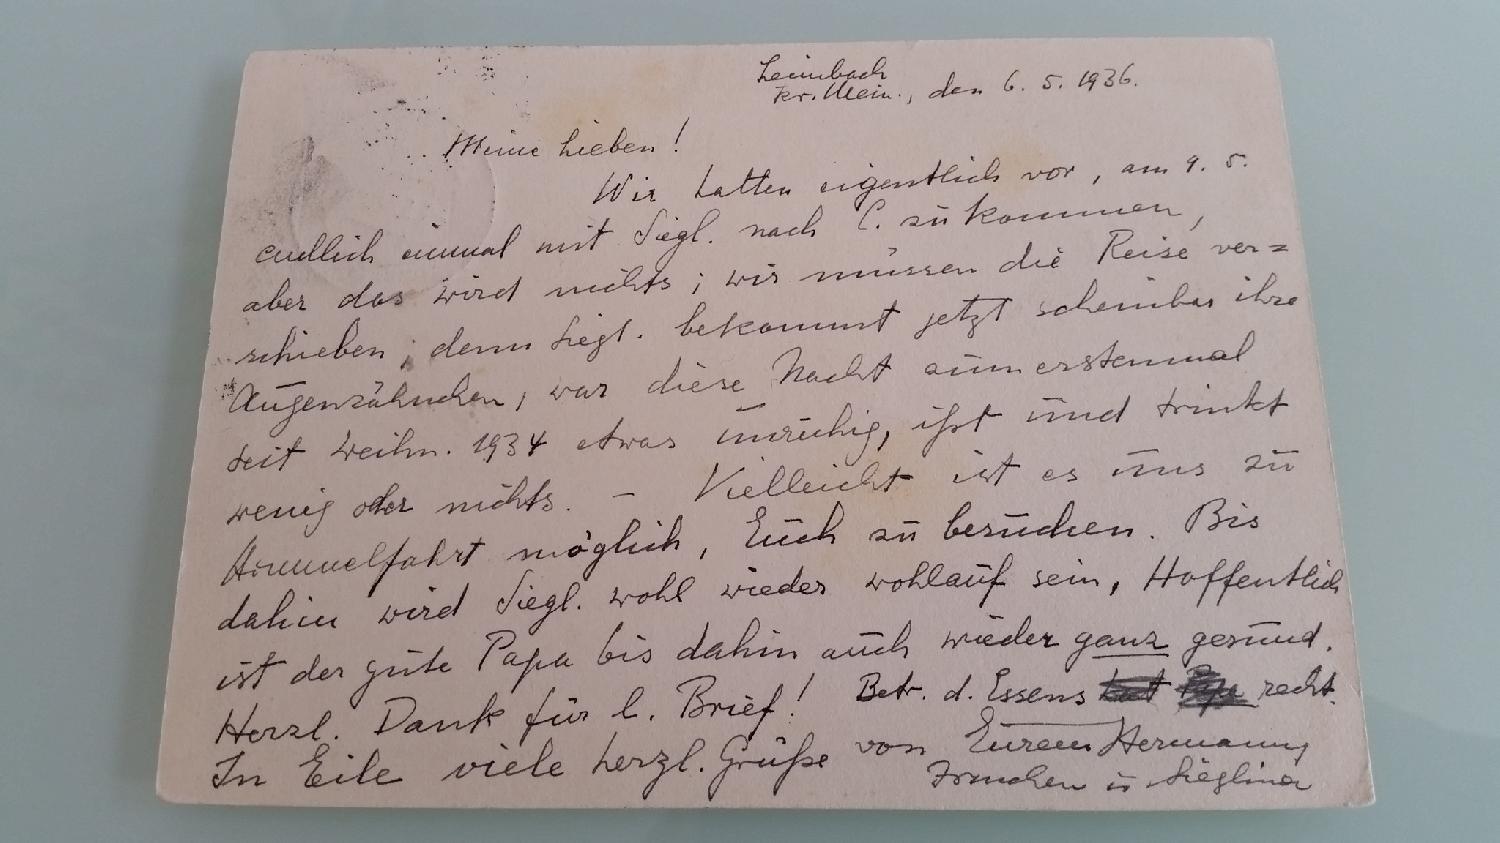 Leimbach
Kr. Mein., den 6. 5. 1936.
Meine Lieben!
Wir hatten eigentlich vor, am 9. 5.
endlich einmal mit Siegl. nach C. zu kommen,
aber das wird nichts; wir müssen die Reise ver=
schieben, denn Siegl. bekommt jetzt scheinbar ihre
Augenzähnchen, war diese Nacht zum erstenmal
seit Weihn. 1934 etwas unruhig, ißt und trinkt
wenig oder nichts. – Vielleicht ist es uns zu
Himmelfahrt möglich, Euch zu besuchen. Bis
dahin wird Siegl. wohl wieder wohlauf sein, Hoffentlich
ist der gute Papa bis dahin auch wieder ganz gesund.
Herzl. Dank für l. Brief! Betr. d. Essens recht.
In Eile viele herzl. Grüße von Eurem Hermann,
Irmchen u. Sieglinde